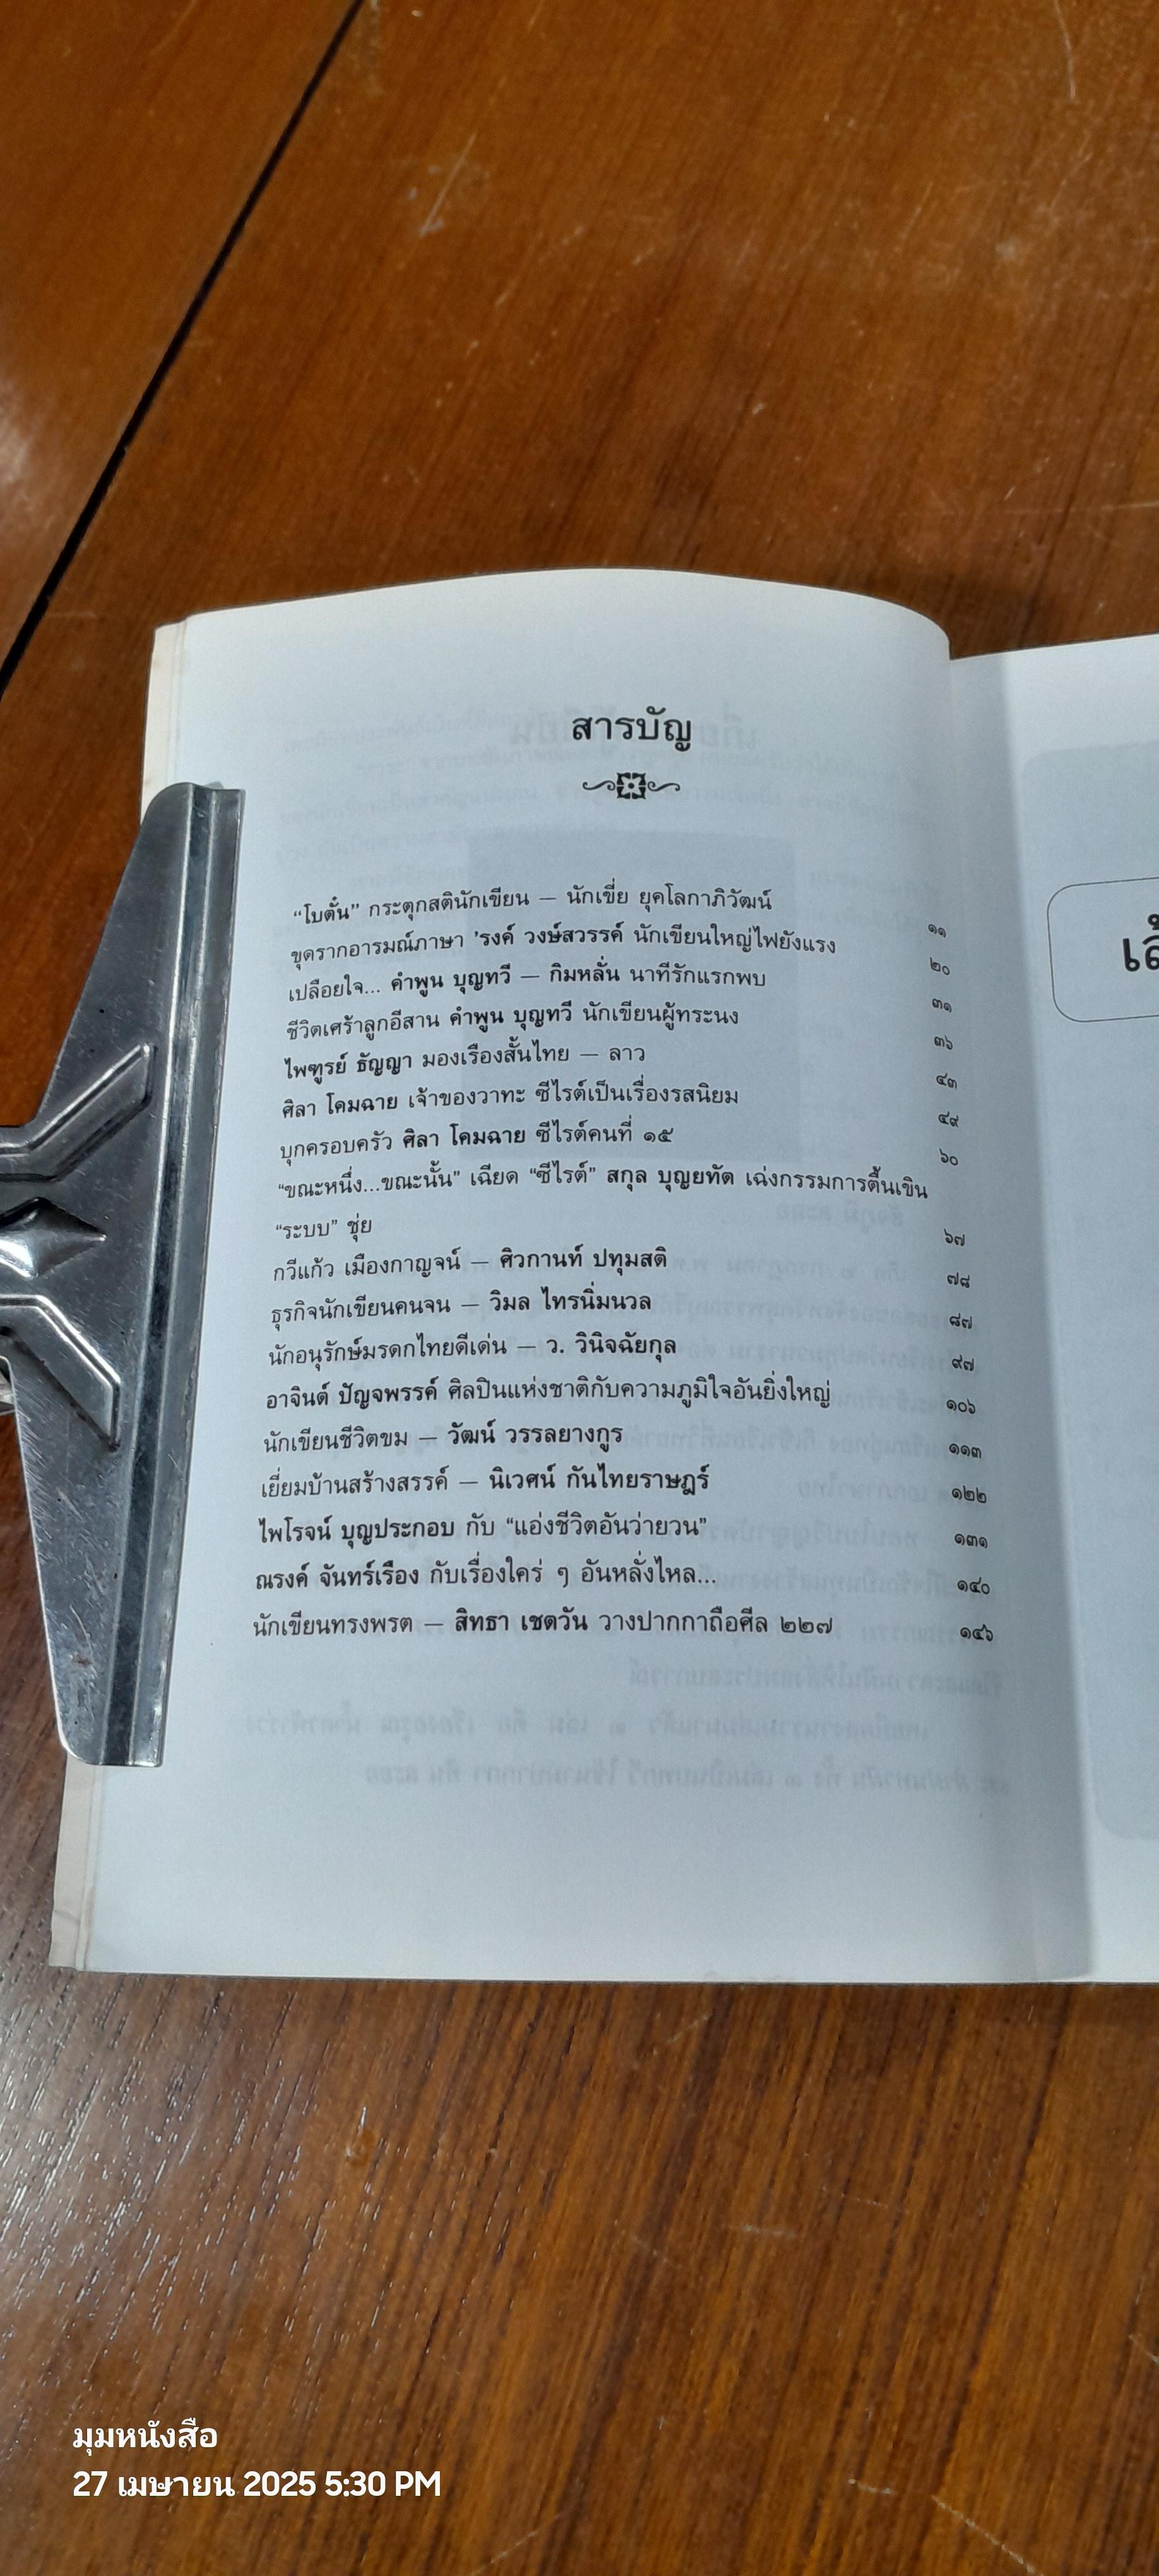 สารบัญ
“โบตั๋น” กระตุกสตินักเขียน — นักเขี่ย ยุคโลกาภิวัฒน์ ๑๑
ขุดรากอารมณ์ภาษา ’รงค์ วงษ์สวรรค์ นักเขียนใหญ่ไฟยังแรง ๒๐
เปลือยใจ... คำพูน บุญทวี — กิมหลั่น นาทีรักแรกพบ ๓๑
ชีวิตเศร้าลูกอีสาน คำพูน บุญทวี นักเขียนผู้ทระนง ๓๖
ไพฑูรย์ ธัญญา มองเรื่องสั้นไทย — ลาว ๔๓
ศิลา โคมฉาย เจ้าของวาทะ ซีไรต์เป็นเรื่องรสนิยม ๔๙
บุกครอบครัว ศิลา โคมฉาย ซีไรต์คนที่ ๑๕ ๖๐
“ขณะหนึ่ง...ขณะนั้น” เฉียด “ซีไรต์” สกุล บุญยทัต เฉ่งกรรมการตื้นเขิน
“ระบบ” ชุ่ย ๖๗
กวีแก้ว เมืองกาญจน์ — ศิวกานท์ ปทุมสติ ๗๘
ธุรกิจนักเขียนคนจน — วิมล ไทรนิ่มนวล ๘๗
นักอนุรักษ์มรดกไทยดีเด่น — ว. วินิจฉัยกุล ๙๗
อาจินต์ ปัญจพรรค์ ศิลปินแห่งชาติกับความภูมิใจอันยิ่งใหญ่ ๑๐๖
นักเขียนชีวิตขม — วัฒน์ วรรลยางกูร ๑๑๓
เยี่ยมบ้านสร้างสรรค์ — นิเวศน์ กันไทยราษฎร์ ๑๒๒
ไพโรจน์ บุญประกอบ กับ “แอ่งชีวิตอันว่ายวน” ๑๓๑
ณรงค์ จันทร์เรือง กับเรื่องใคร่ ๆ อันหลั่งไหล... ๑๔๐
นักเขียนทรงพรต — สิทธา เชตวัน วางปากกาถือศีล ๒๒๗ ๑๔๖
มุมหนังสือ
27 เมษายน 2025 5:30 PM